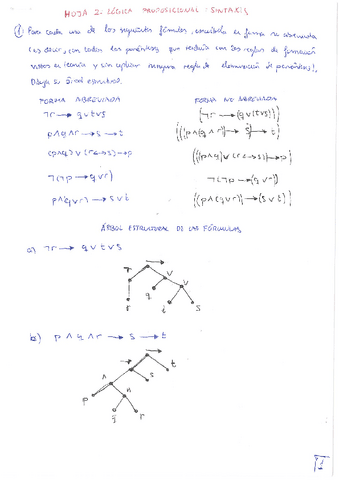 HOJA 2. LÓGICA PROPOSICIONAL: SINTAXIS
① Para cada una de las siguientes fórmulas, escribirla en forma no abreviada
(es decir, con todos los paréntesis que resultan con las reglas de formación
vistas en teoría y sin aplicar ninguna regla de eliminación de paréntesis).
Dibuja su árbol estructural.
FORMA ABREVIADA FORMA NO ABREVIADA
¬r → q∨t∨s (¬r → (q∨(t∨s)))
p∧q∧r → s → t (((p∧(q∧r)) → s) → t)
(p∧q)∨(r↔s)→p (((p∧q)∨(r↔s))→p)
¬(¬p → q∨r) ¬(¬p → (q∨r))
p∧(q∨r) → s∨t ((p∧(q∨r)) → (s∨t))
ÁRBOL ESTRUCTURAL DE LAS FÓRMULAS
a) ¬r → q∨t∨s
→
¬ ∨
r q ∨
t s
b) p∧q∧r → s → t
→
→ t
∧ s
p ∧
q r
1